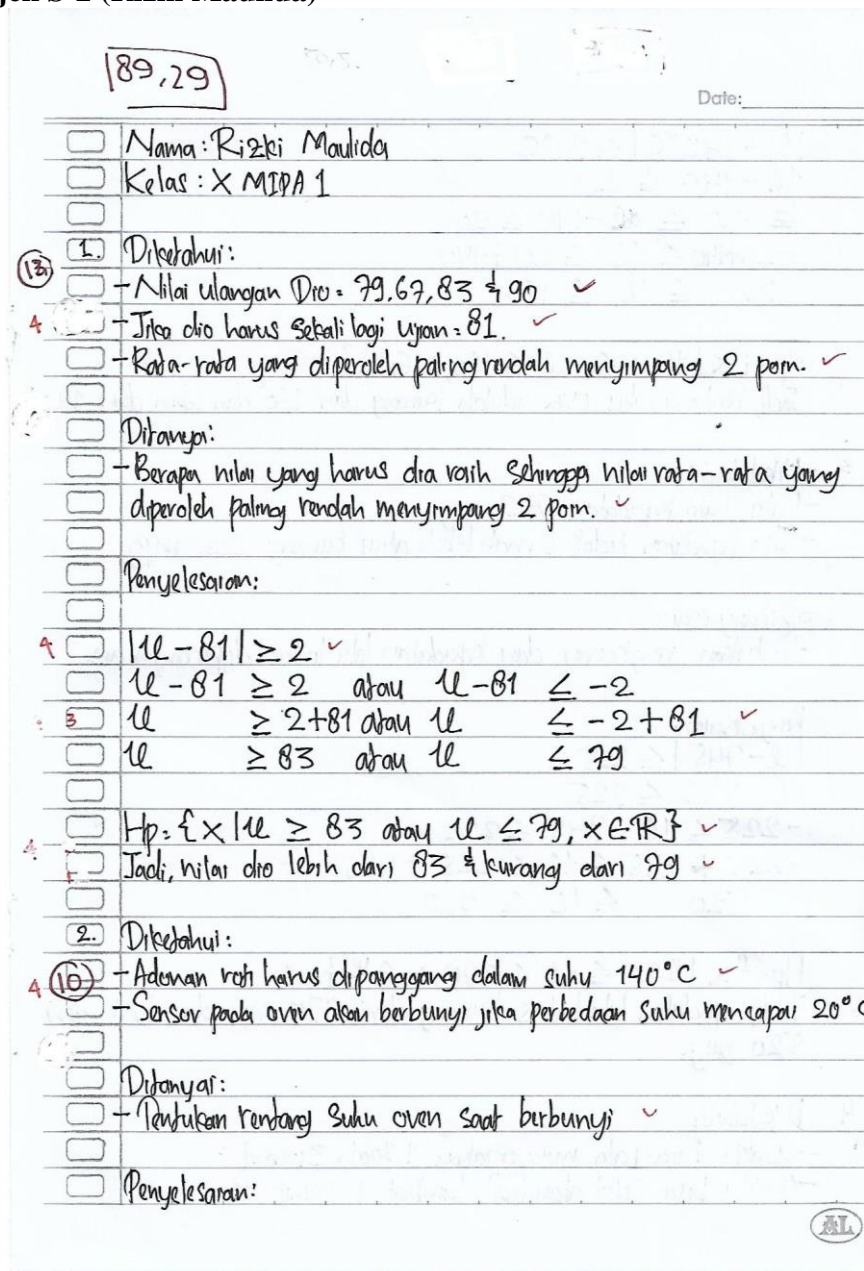 89,29
Date:
Nama: Rizki Maulida
Kelas: X MIPA 1
1. Diketahui:
13
- Nilai ulangan Dio = 79, 67, 83 & 90 ✓
4 - Jika dio harus sekali lagi ujian = 81. ✓
- Rata-rata yang diperoleh paling rendah menyimpang 2 poin. ✓
Ditanya:
- Berapa nilai yang harus dia raih sehingga nilai rata-rata yang
diperoleh paling rendah menyimpang 2 poin. ✓
Penyelesaian:
4 |x - 81| ≥ 2 ✓
x - 81 ≥ 2 atau x - 81 ≤ -2
3 x ≥ 2+81 atau x ≤ -2+81 ✓
x ≥ 83 atau x ≤ 79
Hp = {x | x ≥ 83 atau x ≤ 79, x ∈ R} ✓
Jadi, nilai dio lebih dari 83 & kurang dari 79 ✓
2. Diketahui:
4 - Adonan roti harus dipanggang dalam suhu 140°C ✓
- Sensor pada oven akan berbunyi jika perbedaan suhu mencapai 20°C
Ditanyai:
- Tentukan rentang suhu oven saat berbunyi ✓
Penyelesaian:
AL